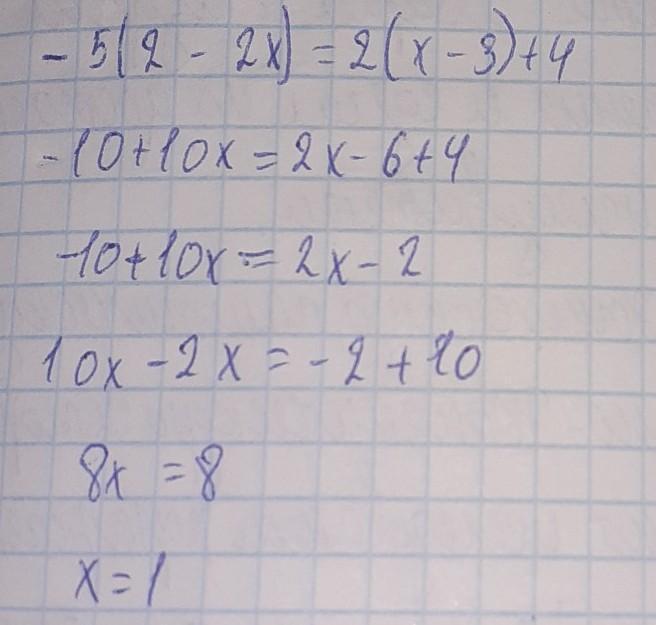 - 5(2 - 2x) = 2(x - 3) + 4
- 10 + 10x = 2x - 6 + 4
-10 + 10x = 2x - 2
10x - 2x = - 2 + 10
8x = 8
x = 1